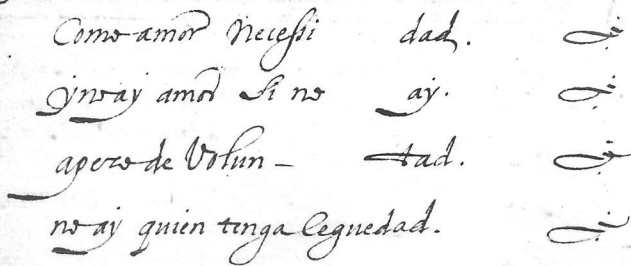 Como amor Necessi dad.
y no ay amor si no ay.
de Volun - tad.
no ay quien tenga Ceguedad.